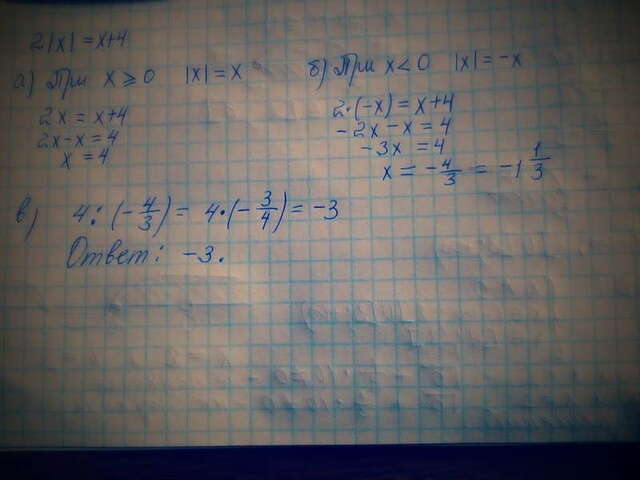 2|x| = x+4
а) При x ≥ 0 |x| = x
2x = x+4
2x-x = 4
x = 4
б) При x < 0 |x| = -x
2·(-x) = x+4
-2x-x = 4
-3x = 4
x = -4/3 = -1 1/3
в) 4 : (-4/3) = 4·(-3/4) = -3
Ответ: -3.